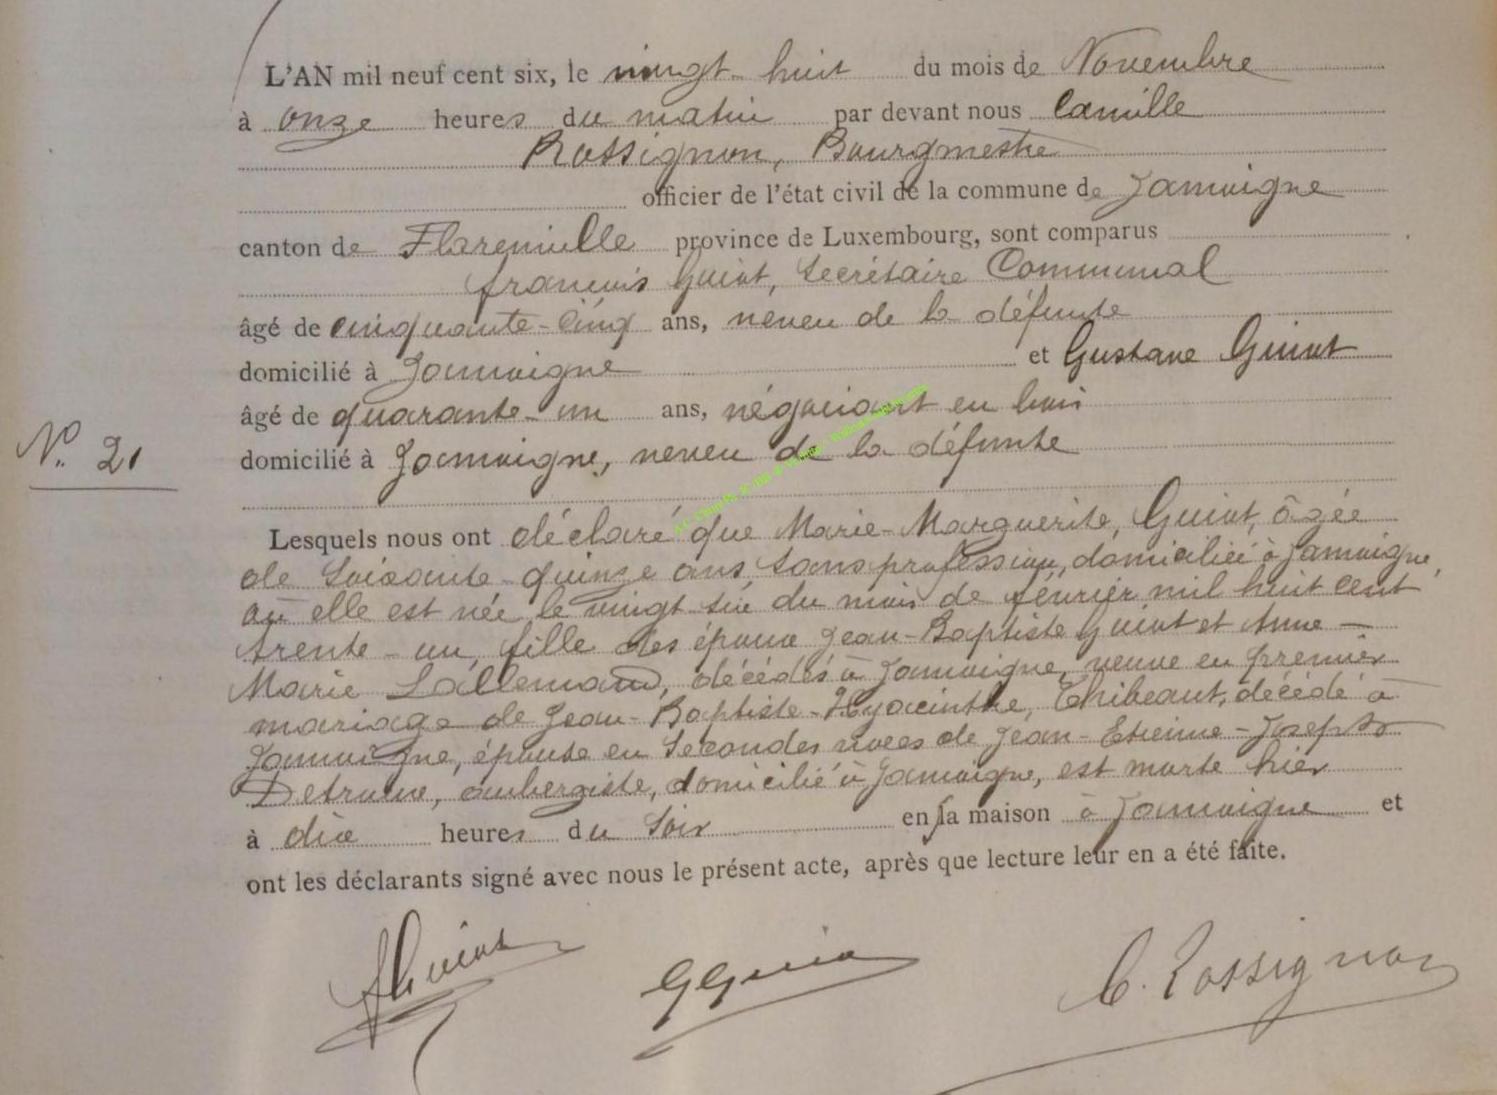 L'AN mil neuf cent six, le vingt-huit du mois de Novembre
à onze heures du matin par devant nous Camille
Rossignon, Bourgmestre
officier de l'état civil de la commune de Jamoigne
canton de Florenville province de Luxembourg, sont comparus
françois Guiot, Secrétaire Communal
âgé de cinquante-cinq ans, neveu de la défunte
domicilié à Jamoigne et Gustave Guiot
âgé de quarante-un ans, négociant en bois
N° 21
domicilié à Jamoigne, neveu de la défunte
Lesquels nous ont déclaré que Marie-Marguerite, Guiot, âgée
de Soixante-quinze ans sans profession, domiciliée à Jamoigne,
où elle est née le vingt six du mois de février mil huit cent
trente-un, fille des époux Jean-Baptiste Guiot et Anne-
Marie Lallemand, décédés à Jamoigne, veuve en premier
mariage de Jean-Baptiste-Hyacinthe, Thibeaut, décédé à
Jamoigne, épouse en Secondes noces de Jean-Etienne-Joseph
aubergiste, domicilié à Jamoigne, est morte hier
à dix heures du Soir en sa maison à Jamoigne et
ont les déclarants signé avec nous le présent acte, après que lecture leur en a été faite.
FGuiot GGuiot C. Rossignon